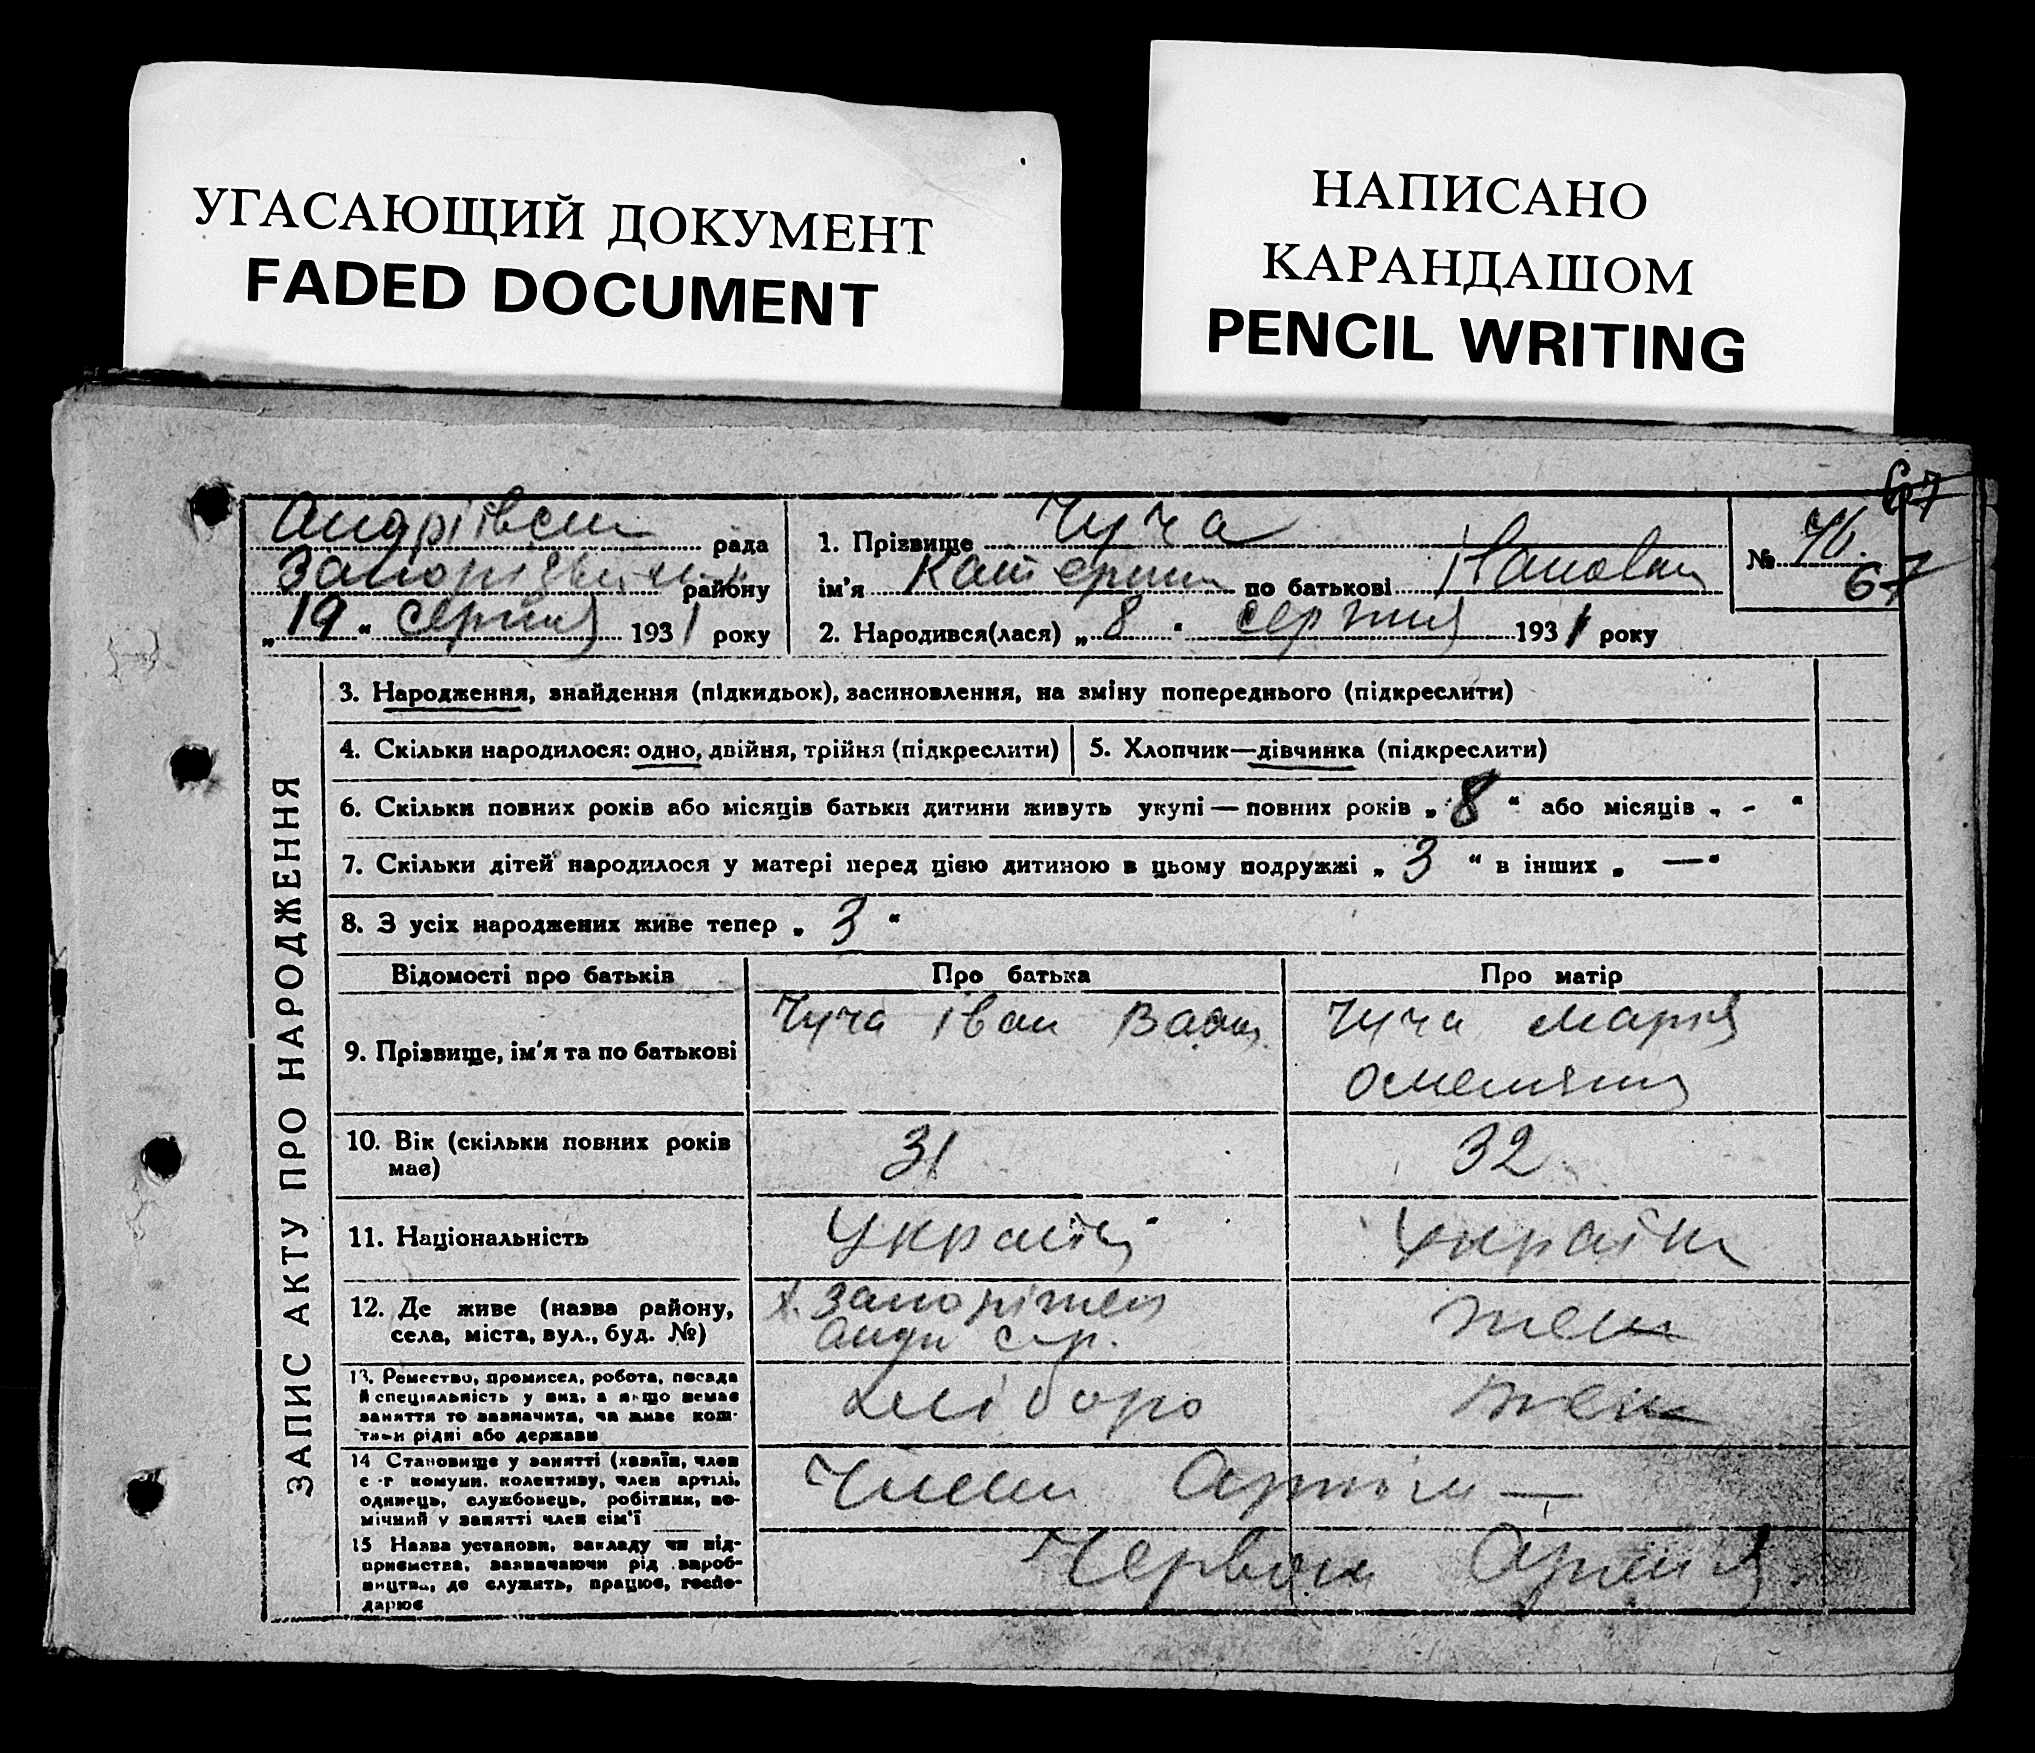 УГАСАЮЩИЙ ДОКУМЕНТ
FADED DOCUMENT
НАПИСАНО
КАРАНДАШОМ
PENCIL WRITING
67
Андріївськ рада
району
„19“ серпня 1931 року
1. Прізвище Чуча
ім'я Катерина по батькові Іванівна
2. Народився(лася) „8“ серпня 1931 року
№ 76.
67
ЗАПИС АКТУ ПРО НАРОДЖЕННЯ
3. Народження, знайдення (підкидьок), засиновлення, на зміну попереднього (підкреслити)
4. Скільки народилося: одно, двійня, трійня (підкреслити)
5. Хлопчик—дівчинка (підкреслити)
6. Скільки повних років або місяців батьки дитини живуть укупі — повних років „8“ або місяців „-“
7. Скільки дітей народилося у матері перед цією дитиною в цьому подружжі „3“ в інших „—“
8. З усіх народжених живе тепер „3“
Відомості про батьків
Про батька
Про матір
9. Прізвище, ім'я та по батькові
Чуча Іван
Чуча Марія
10. Вік (скільки повних років
має)
31
32
11. Національність
Україн
Україн
12. Де живе (назва району,
села, міста, вул., буд. №)
13. Ремество, промисел, робота, посада
й спеціяльність у них, а якщо немає
заняття то зазначити, чи живе кош-
тами рідні або держави
хлібороб
14 Становище у занятті (хазяїн, член
с.-г комуни. колективу, член артілі,
одинець, службовець, робітник, по-
мічний у занятті член сім'ї
Член Артіли —
15 Назва установи, закладу чи під-
приємства, зазначаючи рід вироб-
ництва, де служать, працює, госпо-
дарює
Червон Армія